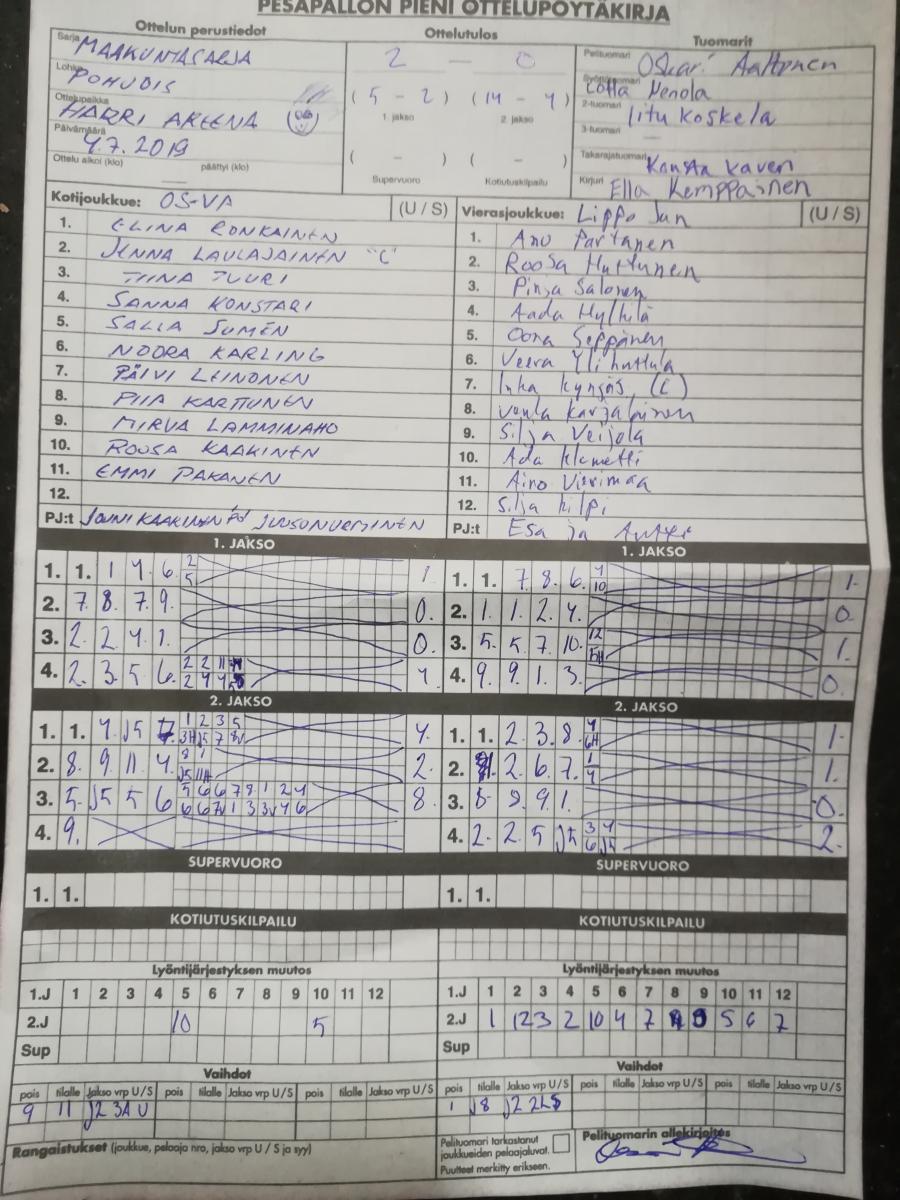 PESÄPALLON PIENI OTTELUPÖYTÄKIRJA
Ottelun perustiedot
Sarja MAAKUNTASARJA
Lohko POHUDIS
Ottelupaikka HARRI AREENA
Päivämäärä 4.7.2019
Ottelu alkoi (klo) päättyi (klo)
Ottelutulos
2 — 0
(5 - 2) (14 - 4)
1. jakso 2. jakso
( - ) ( - )
Supervuoro Kotiutuskilpailu
Tuomarit
Pelituomari Oskari Aaltonen
Lotta Henola
2-tuomari Iitu Koskela
3-tuomari —
Takarajatuomari Konsta Kaveri
Kirjuri Ella Kemppainen
Kotijoukkue: OS-VA (U / S)
1. ELINA RONKAINEN
2. JENNA LAULAJAINEN "C"
3. TIINA TUURI
4. SANNA KONSTARI
5. SALLA SUMÉN
6. NOORA KARLING
7. PÄIVI LEINONEN
8. PIIA KARTTUNEN
9. MIRVA LAMMINAHO
10. ROOSA KAAKINEN
11. EMMI PAKANEN
12.
PJ:t JOUNI KAAKINEN JUUSO NURMINEN
Vierasjoukkue: Lippo Jun (U / S)
1. Anu Partanen
2. Roosa Huttunen
3. Pinja Salonen
4. Aada
5. Oona Seppänen
6. Veera Ylihuttula
7. Inka Kyngäs (C)
8. Karjalainen
9. Silja Veijola
10. Ada Klemetti
11. Aino Vierimaa
12. Silja Kilpi
PJ:t Esa ja
1. JAKSO
1. 1. 1 4 6 2 1.
5
2. 7. 8. 7. 9. 0.
3. 2. 2 4 1. 0.
4. 2. 3. 5 6. 2 2 11 4.
2 4 4
1. JAKSO
1. 1. 7. 8. 6. 4 1.
10
2. 1. 1. 2 4. 0.
3. 5. 5 7. 10. 12 1.
5H
4. 9. 9. 1. 3. 0.
2. JAKSO
1. 1. 4. J5 7. 1 2 3 5 4.
3H J5 7 8V
2. 8. 9. 11. 4. 8 1 2.
J5 11H
3. 5. J5 5 6 5 6 6 7 8 1 2 4 8.
6 6 7V 1 3 3V 4 6
4. 9.
2. JAKSO
1. 1. 2. 3. 8. 4 1.
6H
2. 2. 6. 7. 1 1.
4
3. 8. 9. 9 1. 0.
4. 2. 2. 5 J5 3 4 2.
6 J5
SUPERVUORO
1. 1.
SUPERVUORO
1. 1.
KOTIUTUSKILPAILU
KOTIUTUSKILPAILU
Lyöntijärjestyksen muutos
1.J 1 2 3 4 5 6 7 8 9 10 11 12
2.J 10 5
Sup
Lyöntijärjestyksen muutos
1.J 1 2 3 4 5 6 7 8 9 10 11 12
2.J 1 12 3 2 10 4 7 9 5 6 7
Sup
Vaihdot
pois tilalle Jakso vrp U / S pois tilalle Jakso vrp U / S pois tilalle Jakso vrp U / S
9 11 J2 3A U
Vaihdot
pois tilalle Jakso vrp U / S pois tilalle Jakso vrp U / S pois tilalle Jakso vrp U / S
1 J8 J2 2L S
Rangaistukset (joukkue, pelaaja nro, jakso vrp U / S ja syy)
Pelituomari tarkastanut
joukkueiden pelaajaluvat.
Puutteet merkitty erikseen.
Pelituomarin allekirjoitus